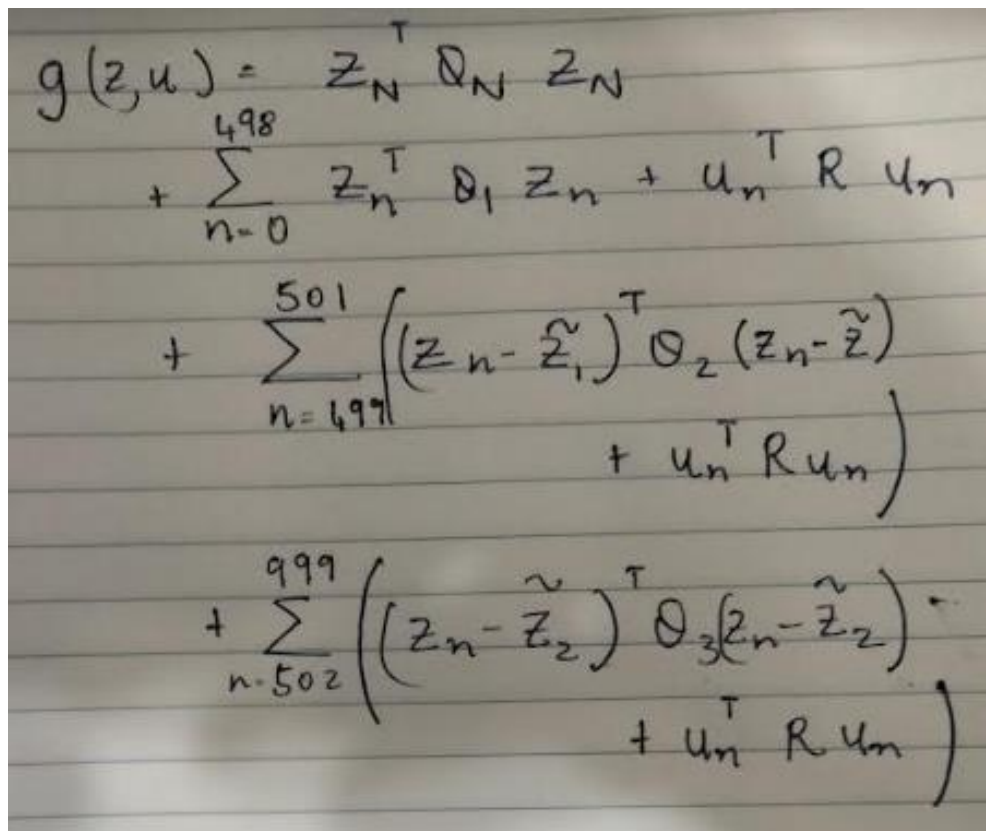 g(z,u) = z_N^T Q_N z_N
+ \sum_{n=0}^{498} z_n^T Q_1 z_n + u_n^T R u_n
+ \sum_{n=499}^{501} ((z_n - \tilde{z}_1)^T Q_2 (z_n - \tilde{z})
+ u_n^T R u_n)
+ \sum_{n=502}^{999} ((z_n - \tilde{z}_2)^T Q_3 (z_n - \tilde{z}_2)
+ u_n^T R u_n)